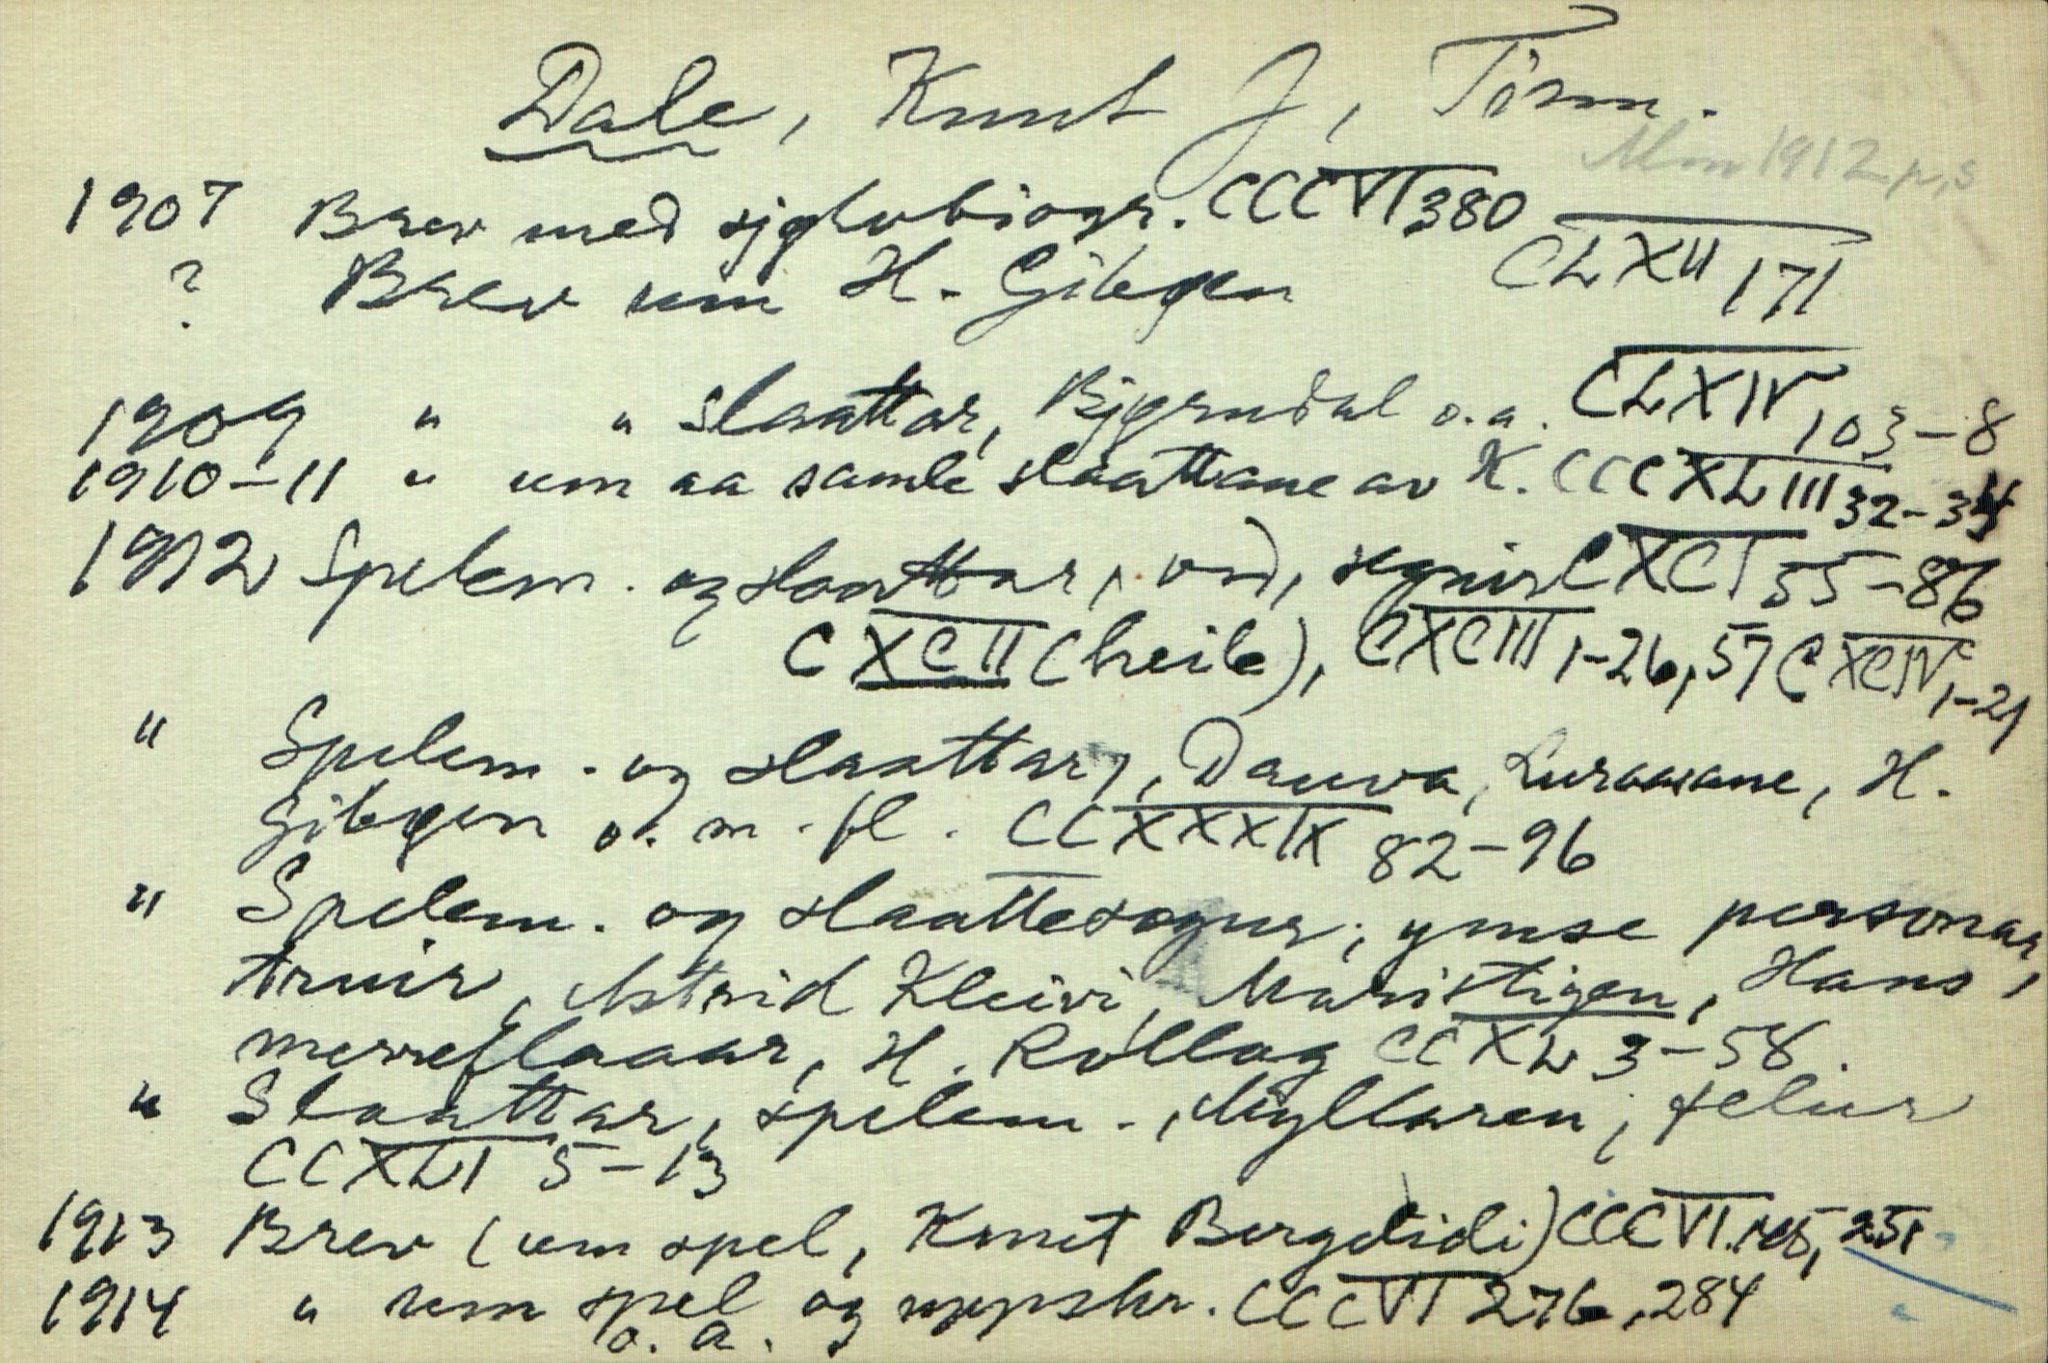 Dale, Knut J, Tinn.
1907 Brev med sjølvbiogr. CCCVI 380
? Brev um H. Gibøen CLXII 171
1909 " " slaattar, Bjørndal o.a. CLXIV 103-8
1910-11 " um aa samle slaattane av K. CCCXLIII 32-34
1912 Spelem. og slaattar, ord, segnir CXCI 55-86
CXCII (heile), CXCIII 1-26, 57 CXCIV 1-21
" Spelem. og slaattar, Dauva, Luraasane, H.
Gibøen o. m. fl. CCXXXIX 82-96
" Spelem. og slaattesogur; ymse personar,
truir, Astrid Kleivi, Maristigen, Hans
merreflaaar, H. Rollag CCXL 3-58.
" Slaattar, spelem., Myllaren, felur
CCXLI 5-13
1913 Brev (um spel, Knut Bergelidi) CCCVI 251
1914 " um spel og uppskr. CCCVI 276, 284
o. a.